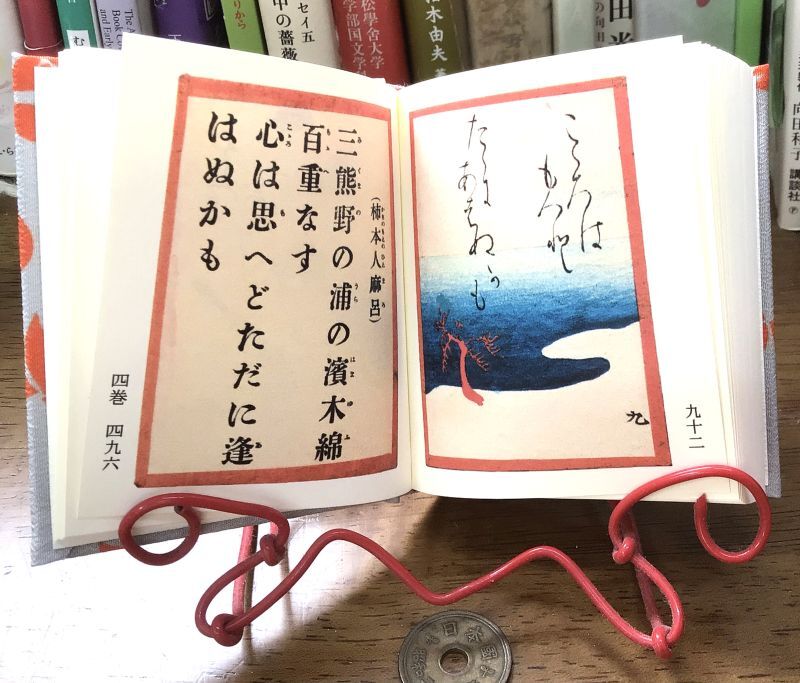 九十二
こゝろは
もへと
たゝにあはぬかも
九
(柿本人麻呂)
三熊野の浦の濱木綿
百重なす
心は思へどただに逢
はぬかも
四巻 四九六
りから
セイ五
中の薔薇
松學舍大学
学部国文学
向田和子
講談社